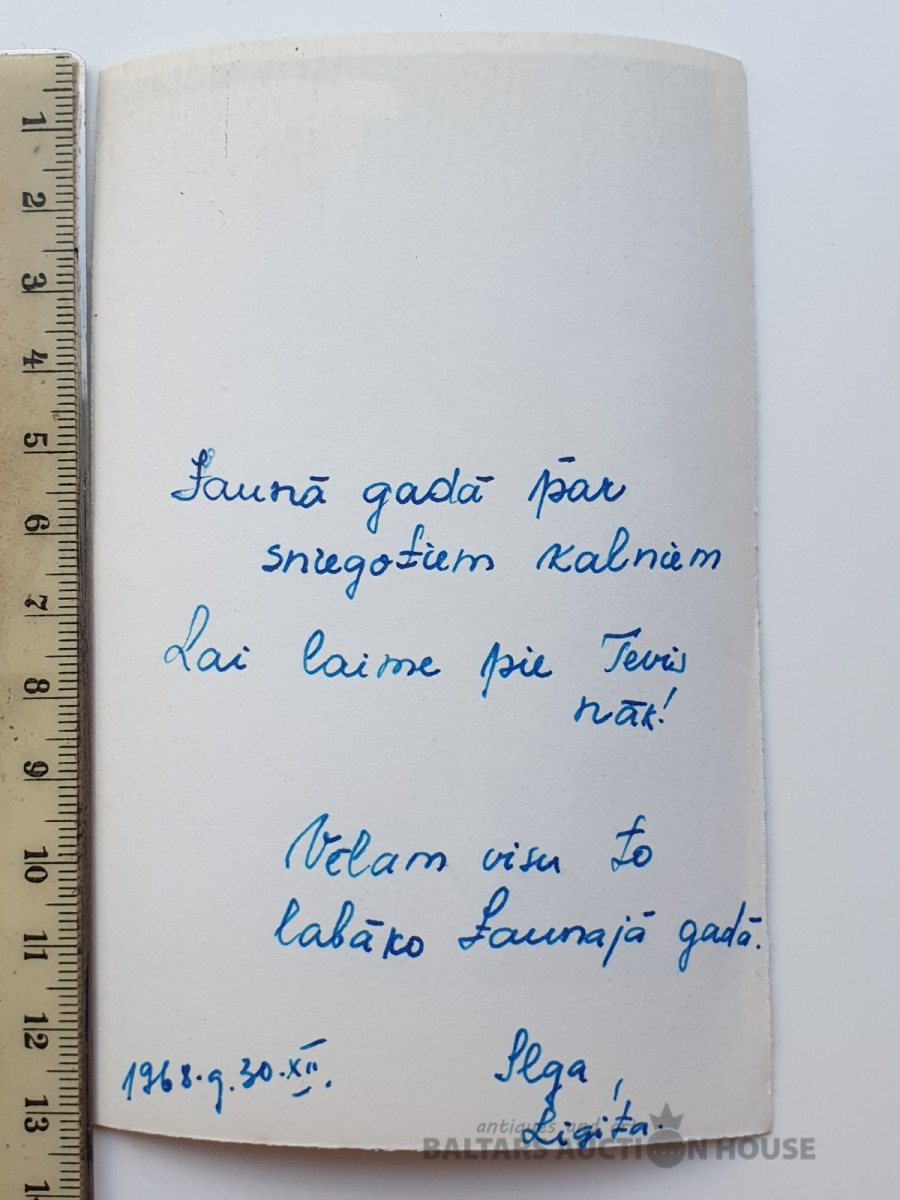 1
2
3
4
5
6
7
8
9
10
11
12
13
Jaunā gadā pār
sniegotiem kalniem
Lai laime pie Tevis
nāk!
Vēlam visu to
labāko Jaunajā gadā.
1968.g.30.XII.
Ilga,
Ligita.
antiques and
BALTARS AUCTION HOUSE